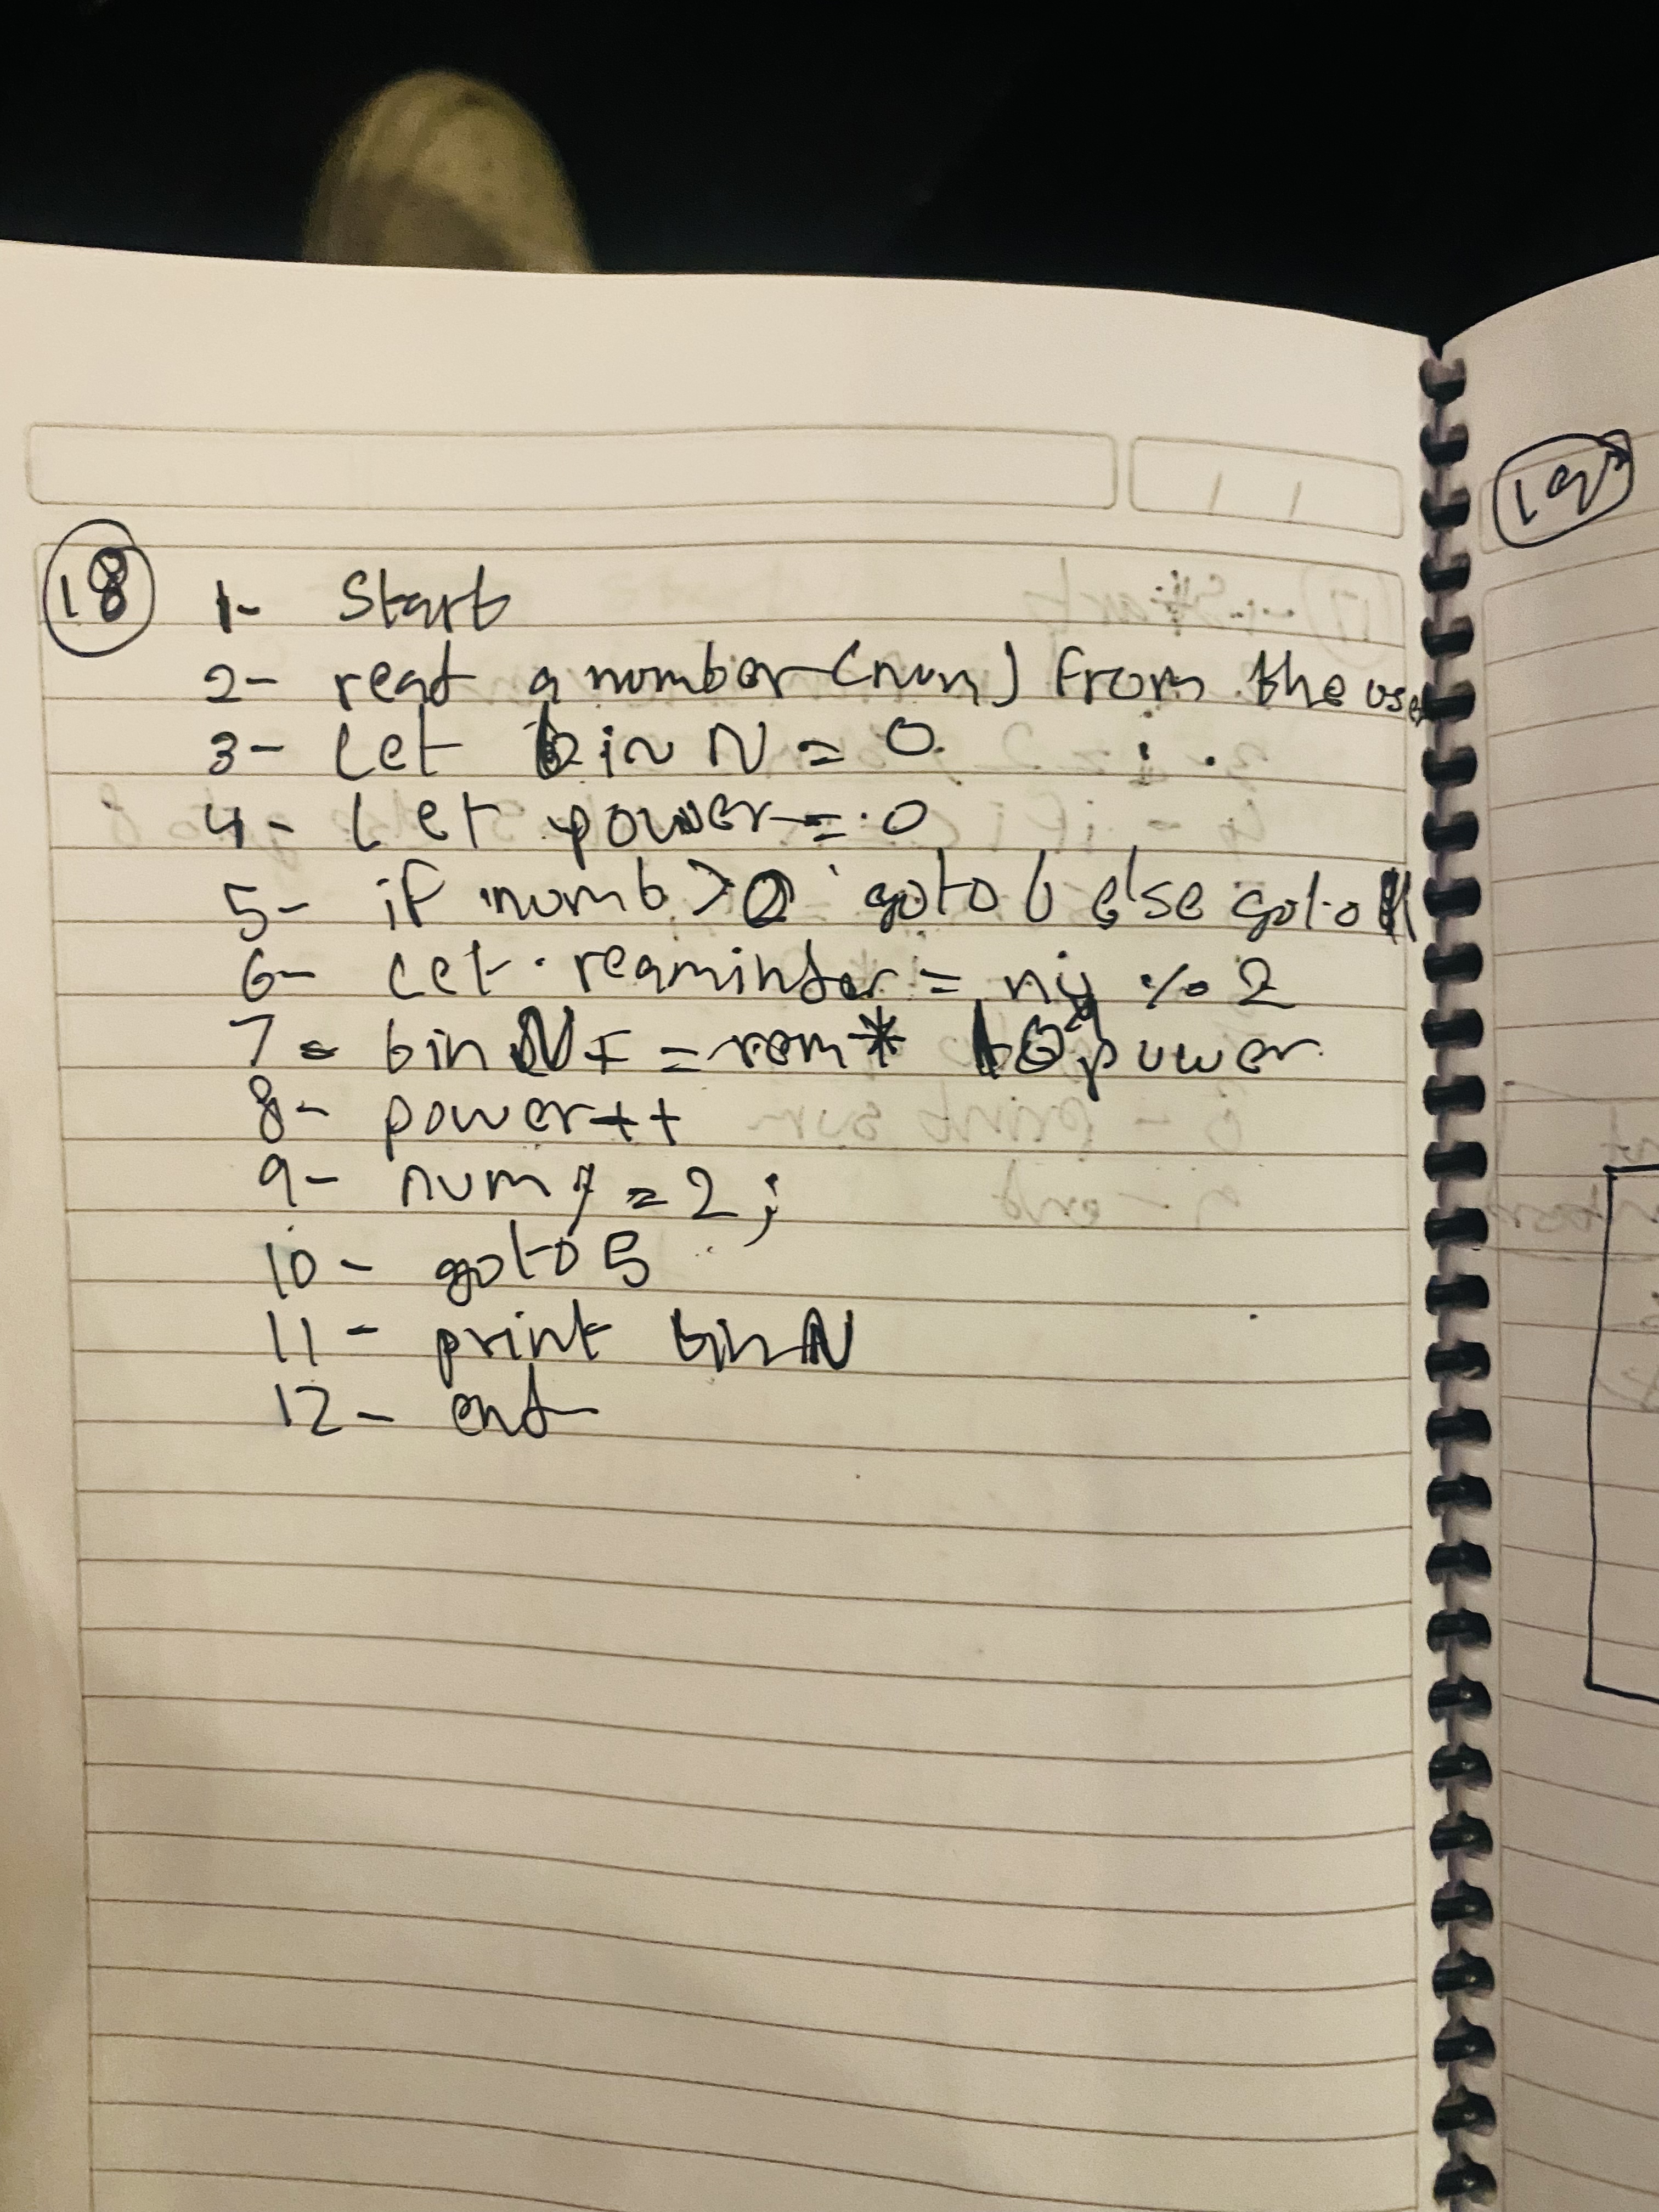 18
1- Start
2- read a number (num) from the user
3- Let binN = 0
4- Let power = 0
5- if numb > 0 goto 6 else goto 11
6- Let reaminder = % 2
7- binN + = rem * 10 power
8- power++
9- num / = 2;
10- goto 5
11- print binN
12- end
19